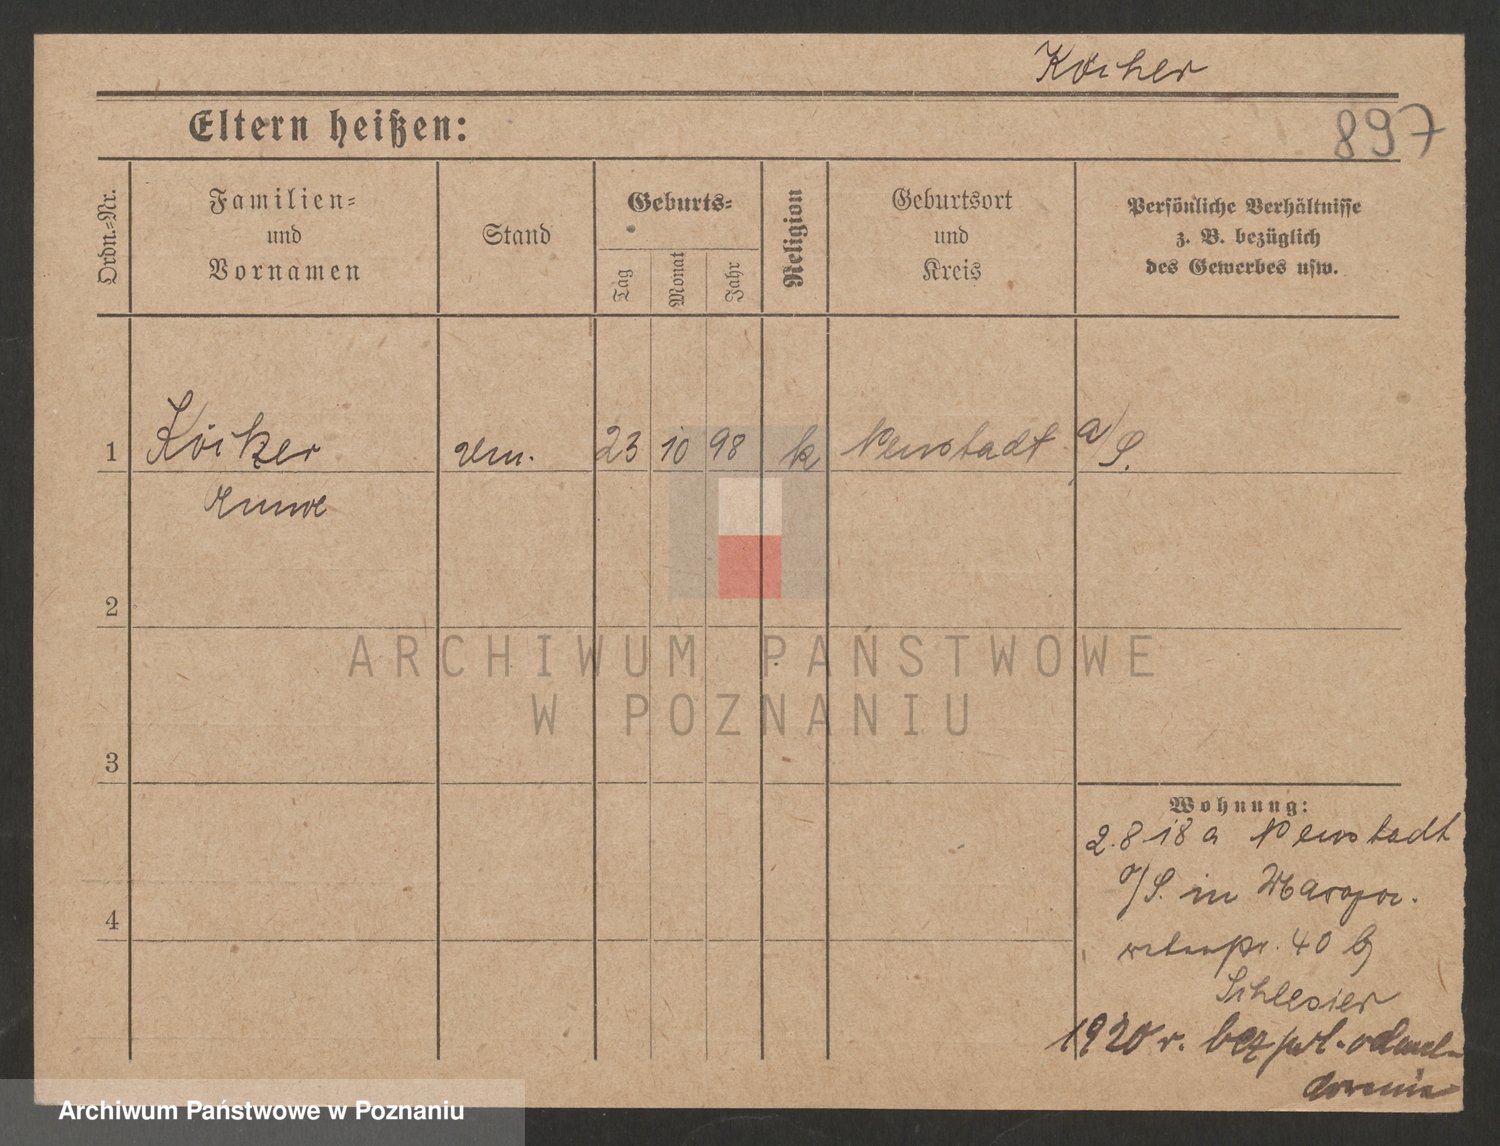 Köcher
897
Eltern heißen:
Ordn.-Nr.
Familien-
und
Vornamen
Stand
Geburts-
Tag
Monat
Jahr
Religion
Geburtsort
und
Kreis
Persönliche Verhältnisse
z. B. bezüglich
des Gewerbes usw.
1
Köcher
23 10 98 k Neustadt
2
ARCHIWUM PAŃSTWOWE
W POZNANIU
3
Wohnung:
2.8 18 a Neustadt
o/S. in
40 b
Schlesier
1920 r. bez pol. odmel-
dowania
4
Archiwum Państwowe w Poznaniu